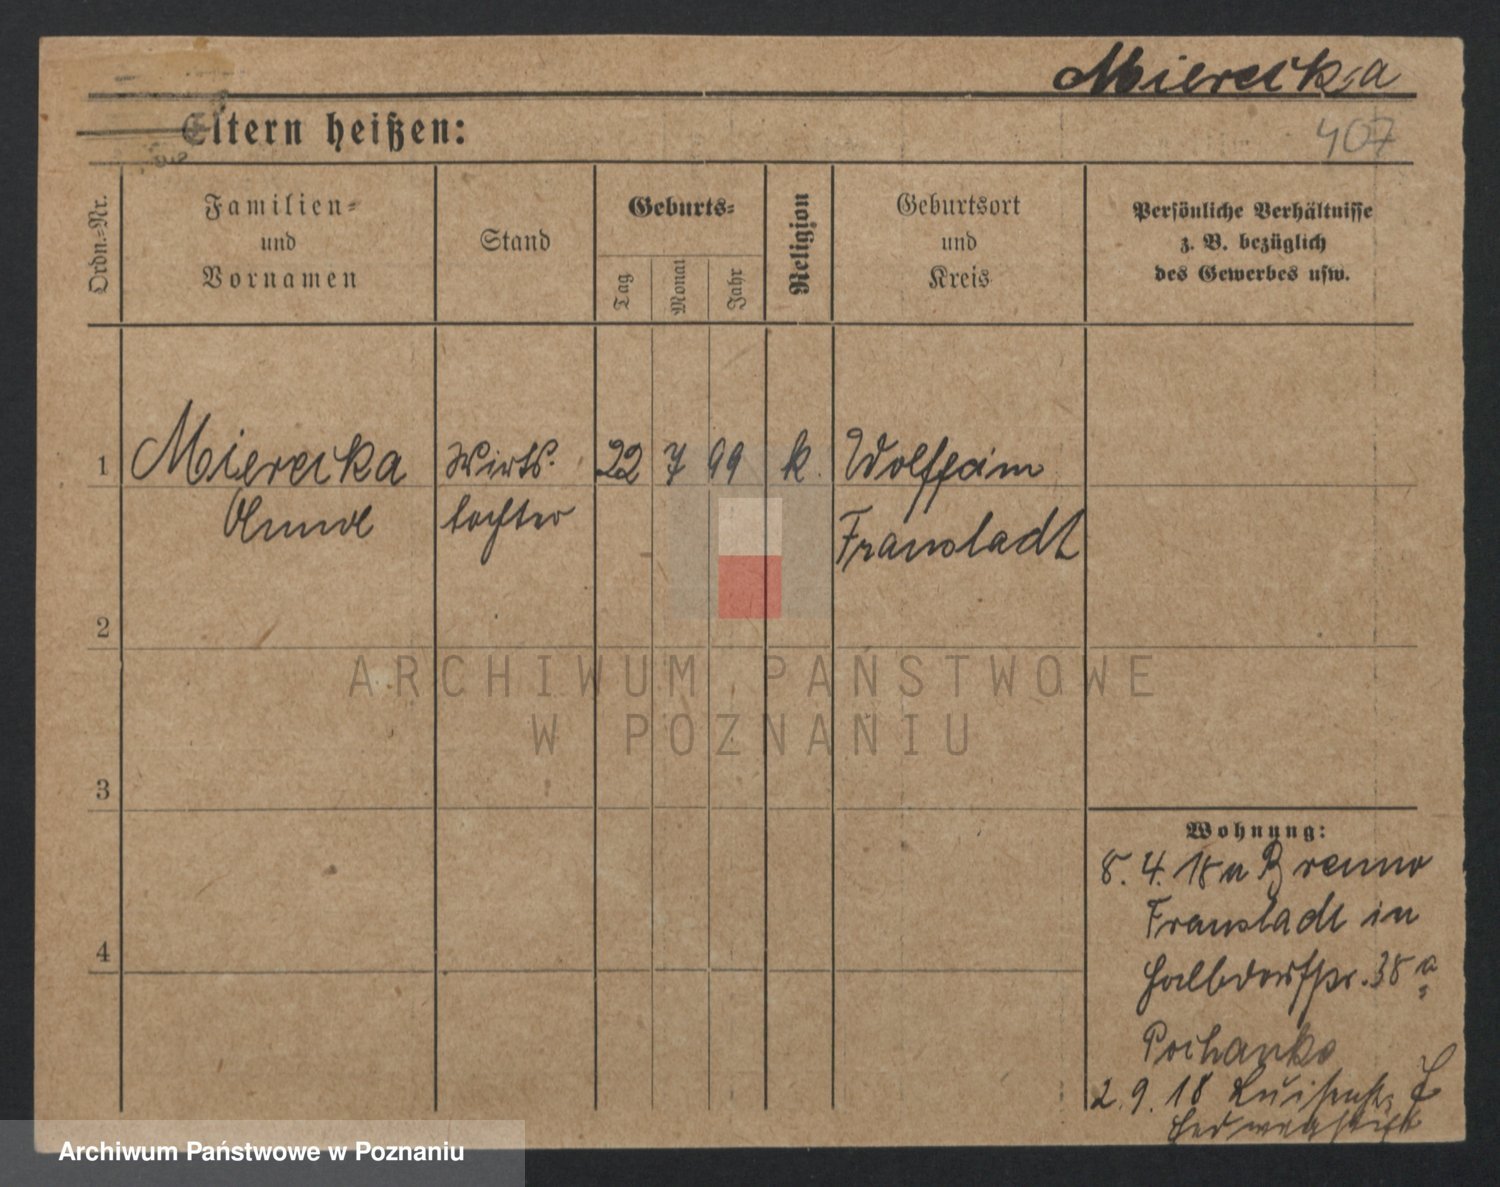 Miereck,a
407
Eltern heißen:
Ordn.-Nr.
Familien- und Vornamen
Stand
Geburts-
Tag
Monat
Jahr
Religion
Geburtsort und Kreis
Persönliche Verhältnisse z. B. bezüglich des Gewerbes usw.
1 Mierecka Wirts. 22 7 99 k.
tochter Fraustadt
2
3
4
Wohnung:
8. 4. 18 Brenno
Fraustadt in
Halbdorfstr. 38 a
2. 9. 18 Luisenstr.
ARCHIWUM PAŃSTWOWE
W POZNANIU
Archiwum Państwowe w Poznaniu